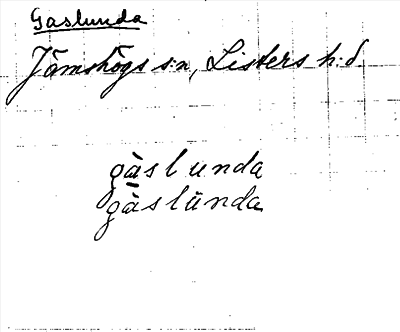 Gaslunda
Jämshögs s:n, Listers h:d
gàslunda
gàslùnda